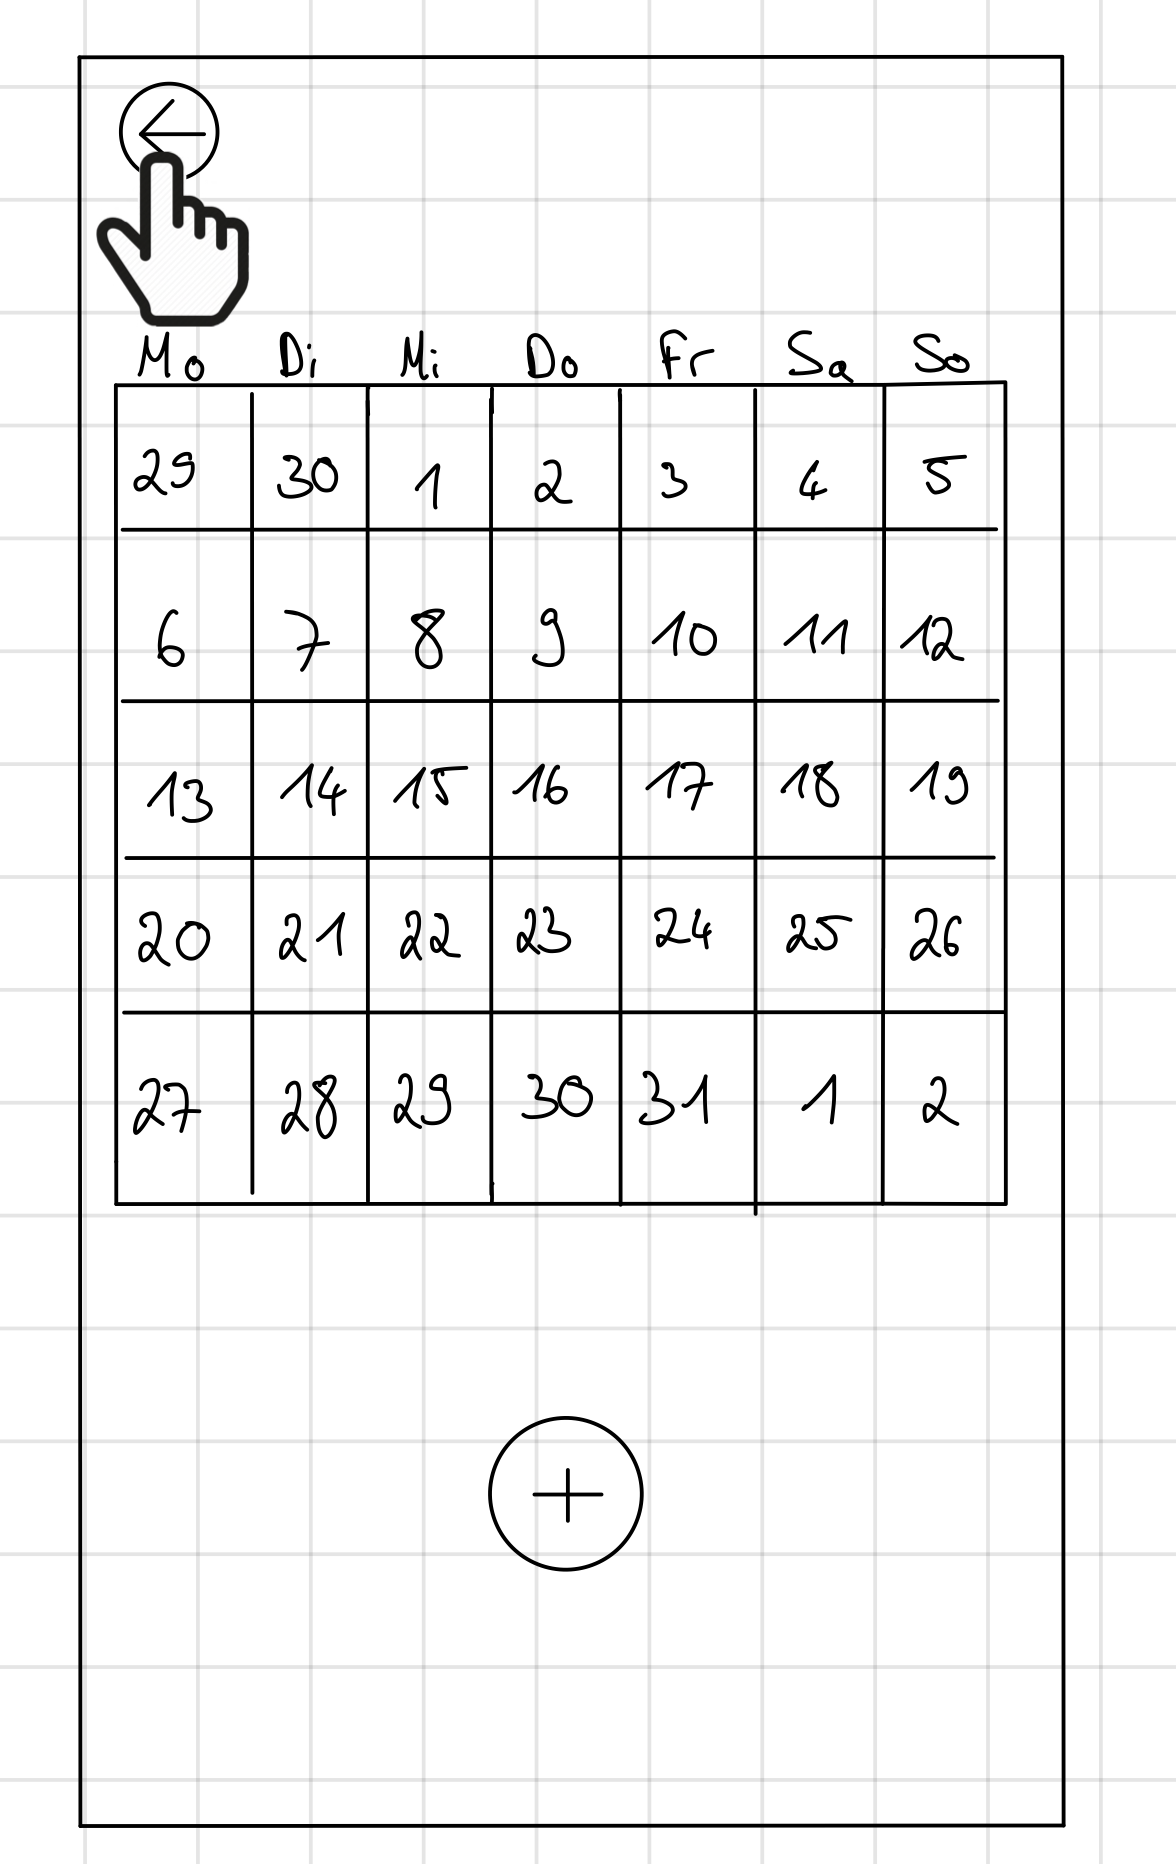 Mo Di Mi Do Fr Sa So
29 30 1 2 3 4 5
6 7 8 9 10 11 12
13 14 15 16 17 18 19
20 21 22 23 24 25 26
27 28 29 30 31 1 2
+